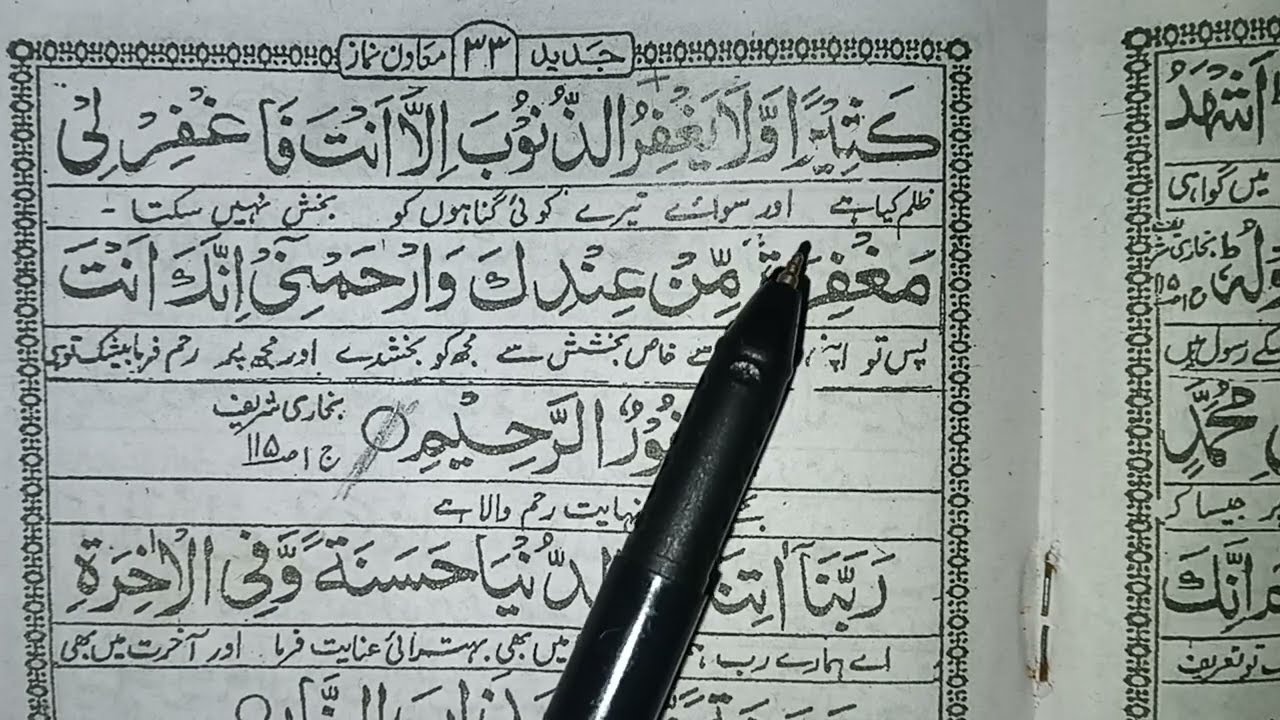 جدید ۳۳ معاون نماز
كَثِيْرًا وَّلَا يَغْفِرُ الذُّنُوْبَ اِلَّا اَنْتَ فَاغْفِرْ لِيْ
ظلم کیا ہے اور سوائے تیرے کوئی گناہوں کو بخش نہیں سکتا -
مَغْفِرَةً مِّنْ عِنْدِكَ وَارْحَمْنِيْ اِنَّكَ اَنْتَ
پس تو اپنی سے خاص بخشش سے مجھ کو بخشدے اور مجھ پر رحم فرما بیشک تو ہی
الرَّحِيْمِ
بخاری شریف
ج ۱ صـ ۱۱۵
نہایت رحم والا ہے
رَبَّنَا اٰتِنَا الدُّنْيَا حَسَنَةً وَّفِي الْاٰخِرَةِ
اے ہمارے رب میں بھی بہتر عنایت فرما اور آخرت میں بھی
النَّارِ
اَشْهَدُ
میں گواہی
بخاری شریف
کے رسول ہیں
مُحَمَّدٍ
جیسا کر
اِنَّكَ
تو تعریف